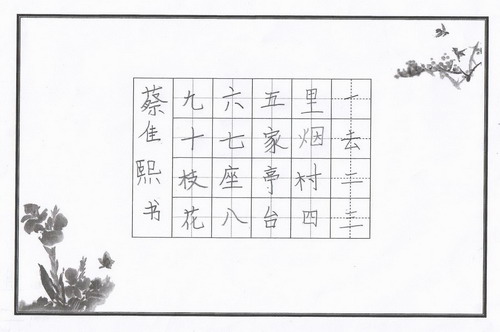 一去二三
里烟村四
五家亭台
六七座八
九十枝花
蔡佳熙书